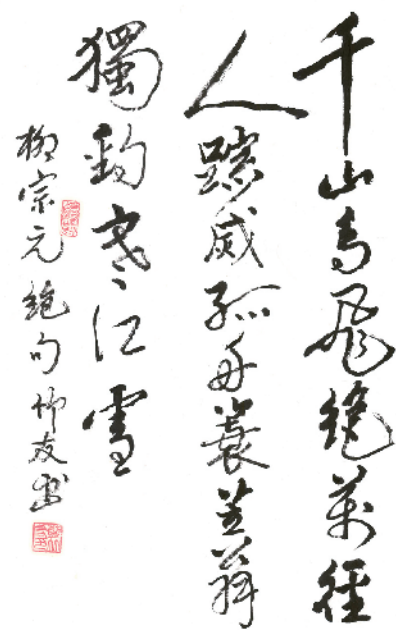 千山鳥飛絶萬徑
人蹤滅孤舟蓑笠翁
獨釣寒江雪
柳宗元絶句 友書